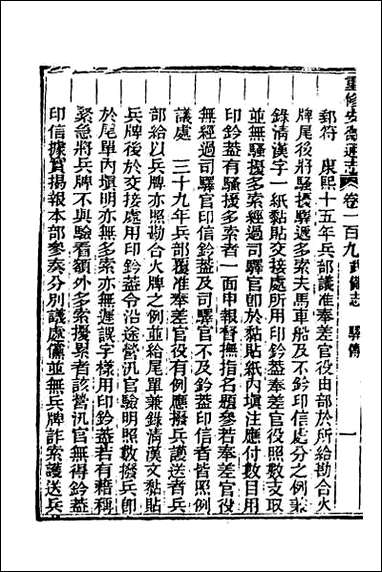 重修安徽通志 卷一百九 武備志 驛傳 一
郵符 康熙十五年兵部議准奉差官役由部於所給勘合火
牌尾後將騷擾驛遞多索夫馬車船及不鈐印信處分之例兼
錄清漢字一紙黏貼交接處所用印鈐蓋奉差官役照數支取
並無騷擾多索經過驛官卽於黏貼紙內塡注應付數目用
印鈐蓋有騷擾多索者一面申報督撫指名題參若奉差官役
無經過司驛官印信鈐蓋及司驛官不及鈐蓋印信者皆照例
議處 三十九年兵部覆准奉差官役有例應撥兵護送者兵
部給以兵牌亦照勘合火牌之例並給尾單兼錄清漢文黏貼
兵牌後於交接處用印鈐蓋令沿途營汛官驗明照數撥兵卽
於尾單內塡明亦無多索亦無遲誤字樣用印鈐蓋若有藉稱
緊急將兵牌不與驗看額外多索擾累者該營汛官無得鈐蓋
印信據實揚報本部參奏分別議處儻並無兵牌詐索護送兵